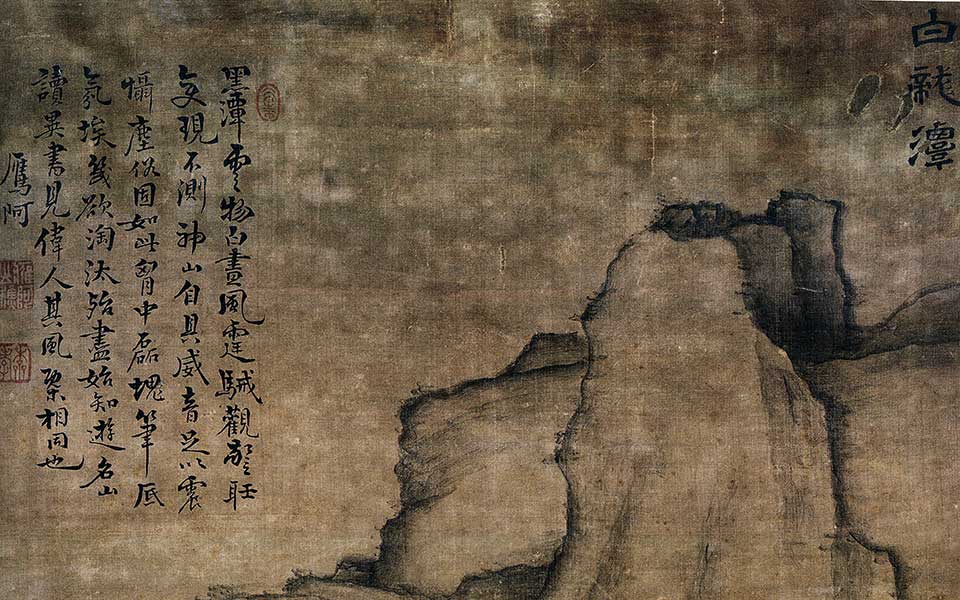 白龍潭
墨潭雲物白晝風霆駴觀
現不測神山自具威音足以震
懾塵俗固如此胷中磊塊筆底
氛埃幾欲淘汰殆盡始知遊名山
讀異書見偉人其風槩相同也
鷹阿